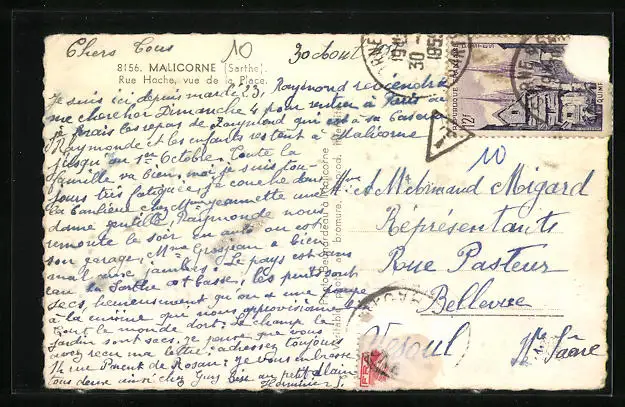 Chers Tous 10 30 Aout
8156. MALICORNE (Sarthe).
Rue Hoche, vue de la Place.
Je suis ici depuis mardi 23, Raymond reviendra
me chercher Dimanche 4 pour rentrer à Paris où
je ferais les repas de Raymond qui est à sa caserne
Raymonde et les enfants restent à Malicorne
jusqu'au 1er Octobre. Toute la
famille va bien, moi je suis tou-
jours très fatiguée, je couche dans
la banlieue chez une
dame gentille, Raymonde nous
remonte le soir en auto on est
son garage, Mme Grosjean a bien
mal aux jambes. Le pays est sans
eau la Sarthe est basse, les puits sont
secs, heureusement qu'on a une pompe
à la cuisine qui nous approvisionne
tout le monde dort. Le champ le
jardin sont secs. je pense que vous
avez reçu ma lettre, adressez toujours
14 rue Piment de Rosan. je vous embrasse
tous deux ainsi chez Guy Lise au petit Alain
RÉPUBLIQUE FRANÇAISE
POSTES
12F
QUIMPER
1955
T
10
Mr & Mme Armand Migard
Représentants
Rue Pasteur
Bellevue
Vesoul Hte Saône